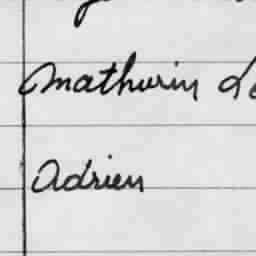 Mathurin
Adrien